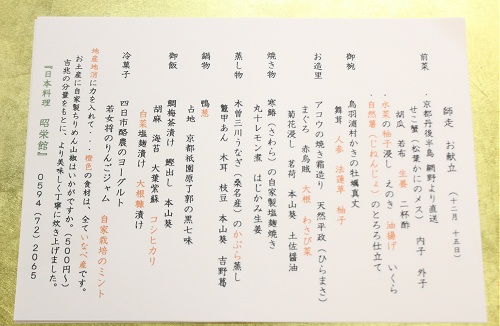 師走 お献立 (十二月 十五日)
前菜 ・京都丹後半島 網野より直送
せこ蟹(松葉かにのメス) 内子 外子
胡瓜 若布 生姜 二杯酢
・水菜の柚子浸し えのき 油揚げ いくら
・自然薯(じねんじょ)のとろろ仕立て
御椀 鳥羽浦村かきの牡蠣真丈
舞茸 人参 法蓮草 柚子
お造里 アコウの焼き霜造り 天然平政(ひらまさ)
まぐろ 赤烏賊 大根 わさび菜
菊花浸し 茗荷 本山葵 土佐醤油
焼き物 寒鰆(さわら)の自家製塩麹焼き
丸十レモン煮 はじかみ生姜
蒸し物 木曽三川うなぎ(桑名産)のかぶら蒸し
鼈甲あん 木耳 枝豆 本山葵 吉野葛
鍋物 鴨葱
占地 京都祇園原了郭の黒七味
御飯 鯛梅茶漬け 鰹出し 本山葵
胡麻 海苔 大葉紫蘇 コシヒカリ
白菜塩麹漬け 大根糠漬け
冷菓子 四日市酪農のヨーグルト
若女将のりんごジャム 自家栽培のミント
地産地消に力を入れて・・・橙色の食材は、全ていなべ産です。
お土産に自家製ちりめん山椒はいかがですか。(500円〜)
吉兆の分量をもとに、より美味しく丁寧に炊き上げました。
『日本料理 昭栄館』 0594(72)2065